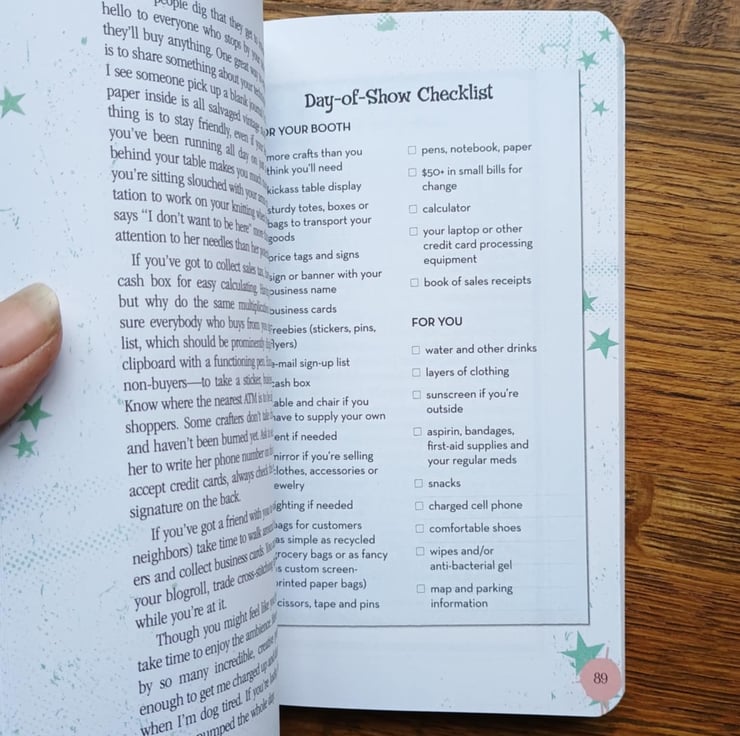 people dig that they get to
hello to everyone who stops by your
they'll buy anything. One great way
is to share something about your
I see someone pick up a blank journal
paper inside is all salvaged vintage
thing is to stay friendly, even if
you've been running all day on
behind your table makes you much
you're sitting slouched with your arms
tation to work on your knitting when
says "I don't want to be here" more
attention to her needles than her
If you've got to collect sales tax,
cash box for easy calculating.
but why do the same multiplication
sure everybody who buys from you
list, which should be prominently
clipboard with a functioning pen.
non-buyers—to take a sticker,
Know where the nearest ATM is
shoppers. Some crafters don't take
and haven't been burned yet. Ask
her to write her phone number on
accept credit cards, always check
signature on the back.
If you've got a friend with you
neighbors) take time to walk around
ers and collect business cards.
your blogroll, trade cross-stitching
while you're at it.
Though you might feel like
take time to enjoy the ambience.
by so many incredible, creative
enough to get me charged up
when I'm dog tired. If you're
pumped the whole day.
Day-of-Show Checklist
OR YOUR BOOTH
more crafts than you
think you'll need
kickass table display
sturdy totes, boxes or
bags to transport your
goods
price tags and signs
sign or banner with your
business name
business cards
freebies (stickers, pins,
flyers)
e-mail sign-up list
cash box
table and chair if you
have to supply your own
tent if needed
mirror if you're selling
clothes, accessories or
jewelry
lighting if needed
bags for customers
(as simple as recycled
grocery bags or as fancy
as custom screen-
printed paper bags)
scissors, tape and pins
pens, notebook, paper
$50+ in small bills for
change
calculator
your laptop or other
credit card processing
equipment
book of sales receipts
FOR YOU
water and other drinks
layers of clothing
sunscreen if you're
outside
aspirin, bandages,
first-aid supplies and
your regular meds
snacks
charged cell phone
comfortable shoes
wipes and/or
anti-bacterial gel
map and parking
information
89